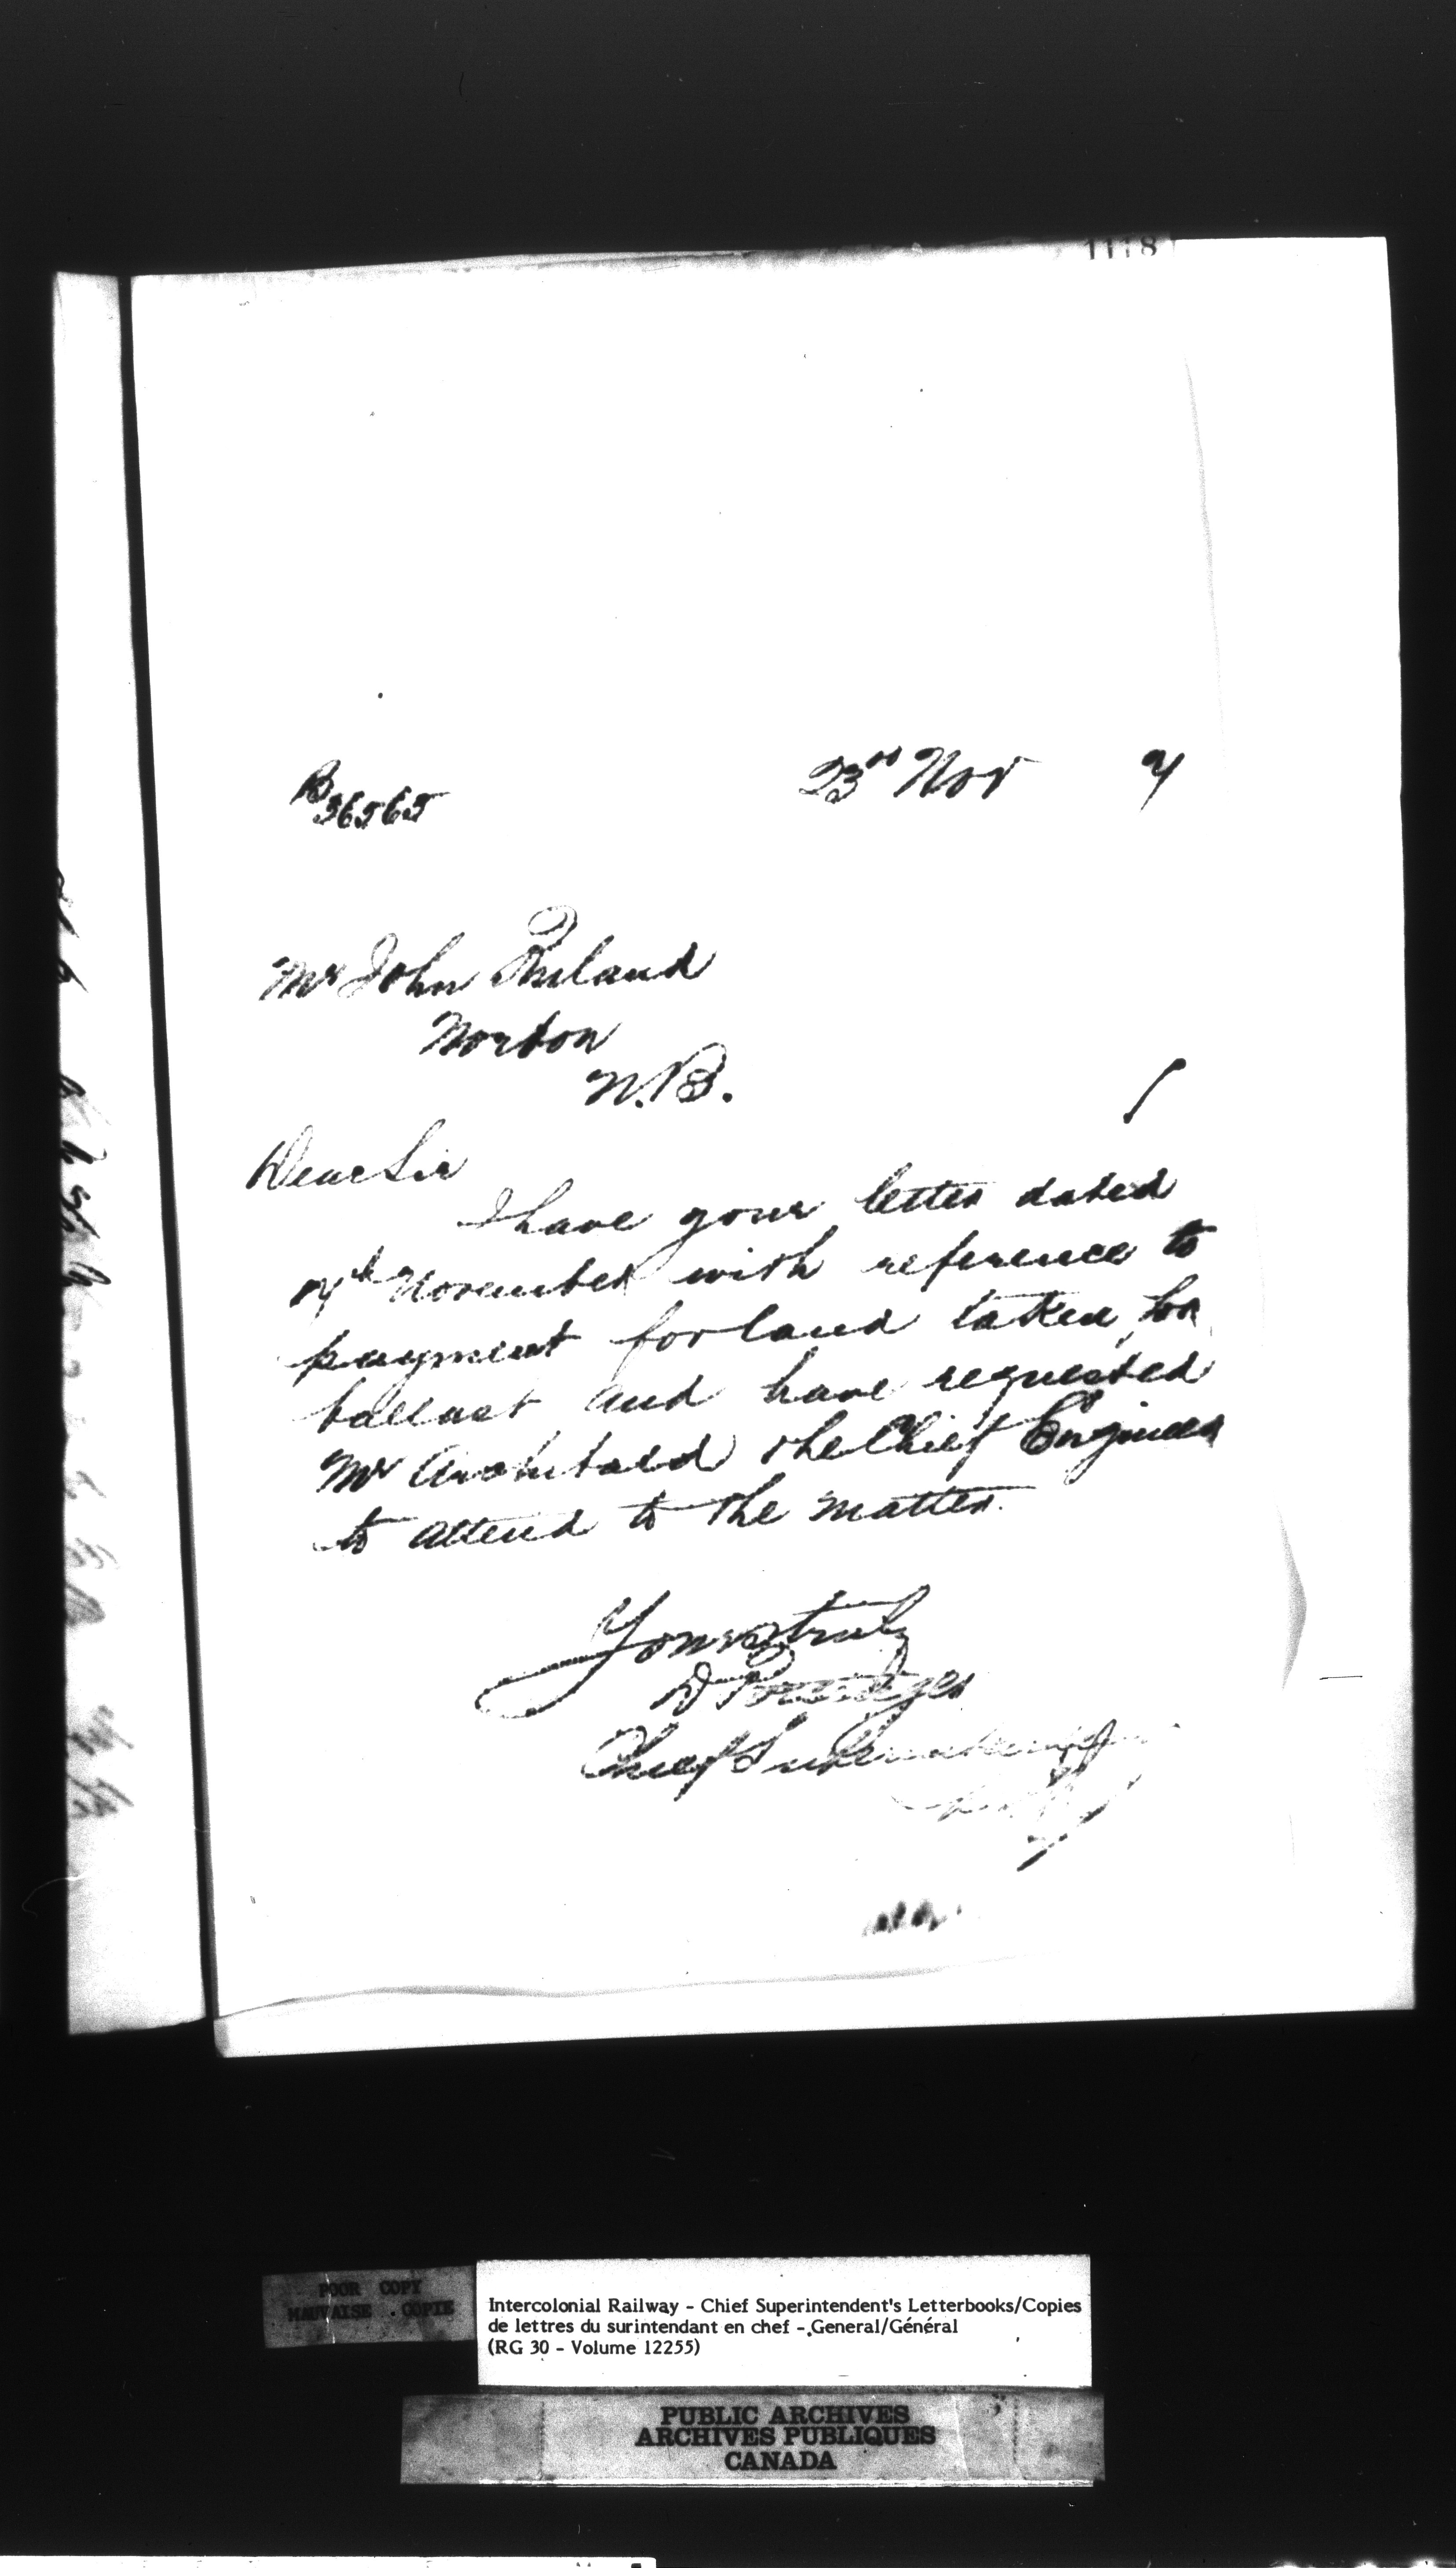 1178
B
36565
23rd Nov 7
Mr John
Norton
N.B.
Dear Sir
I have your letter dated
7th November with reference to
payment for land taken for
ballast and have requested
Mr Archibald the Chief Engineer
to attend to the matter.
Yours truly
D Pottinger
Chief Superintendent
POOR COPY
MAUVAISE COPIE
Intercolonial Railway - Chief Superintendent's Letterbooks/Copies
de lettres du surintendant en chef - General/Général
(RG 30 - Volume 12255)
PUBLIC ARCHIVES
ARCHIVES PUBLIQUES
CANADA